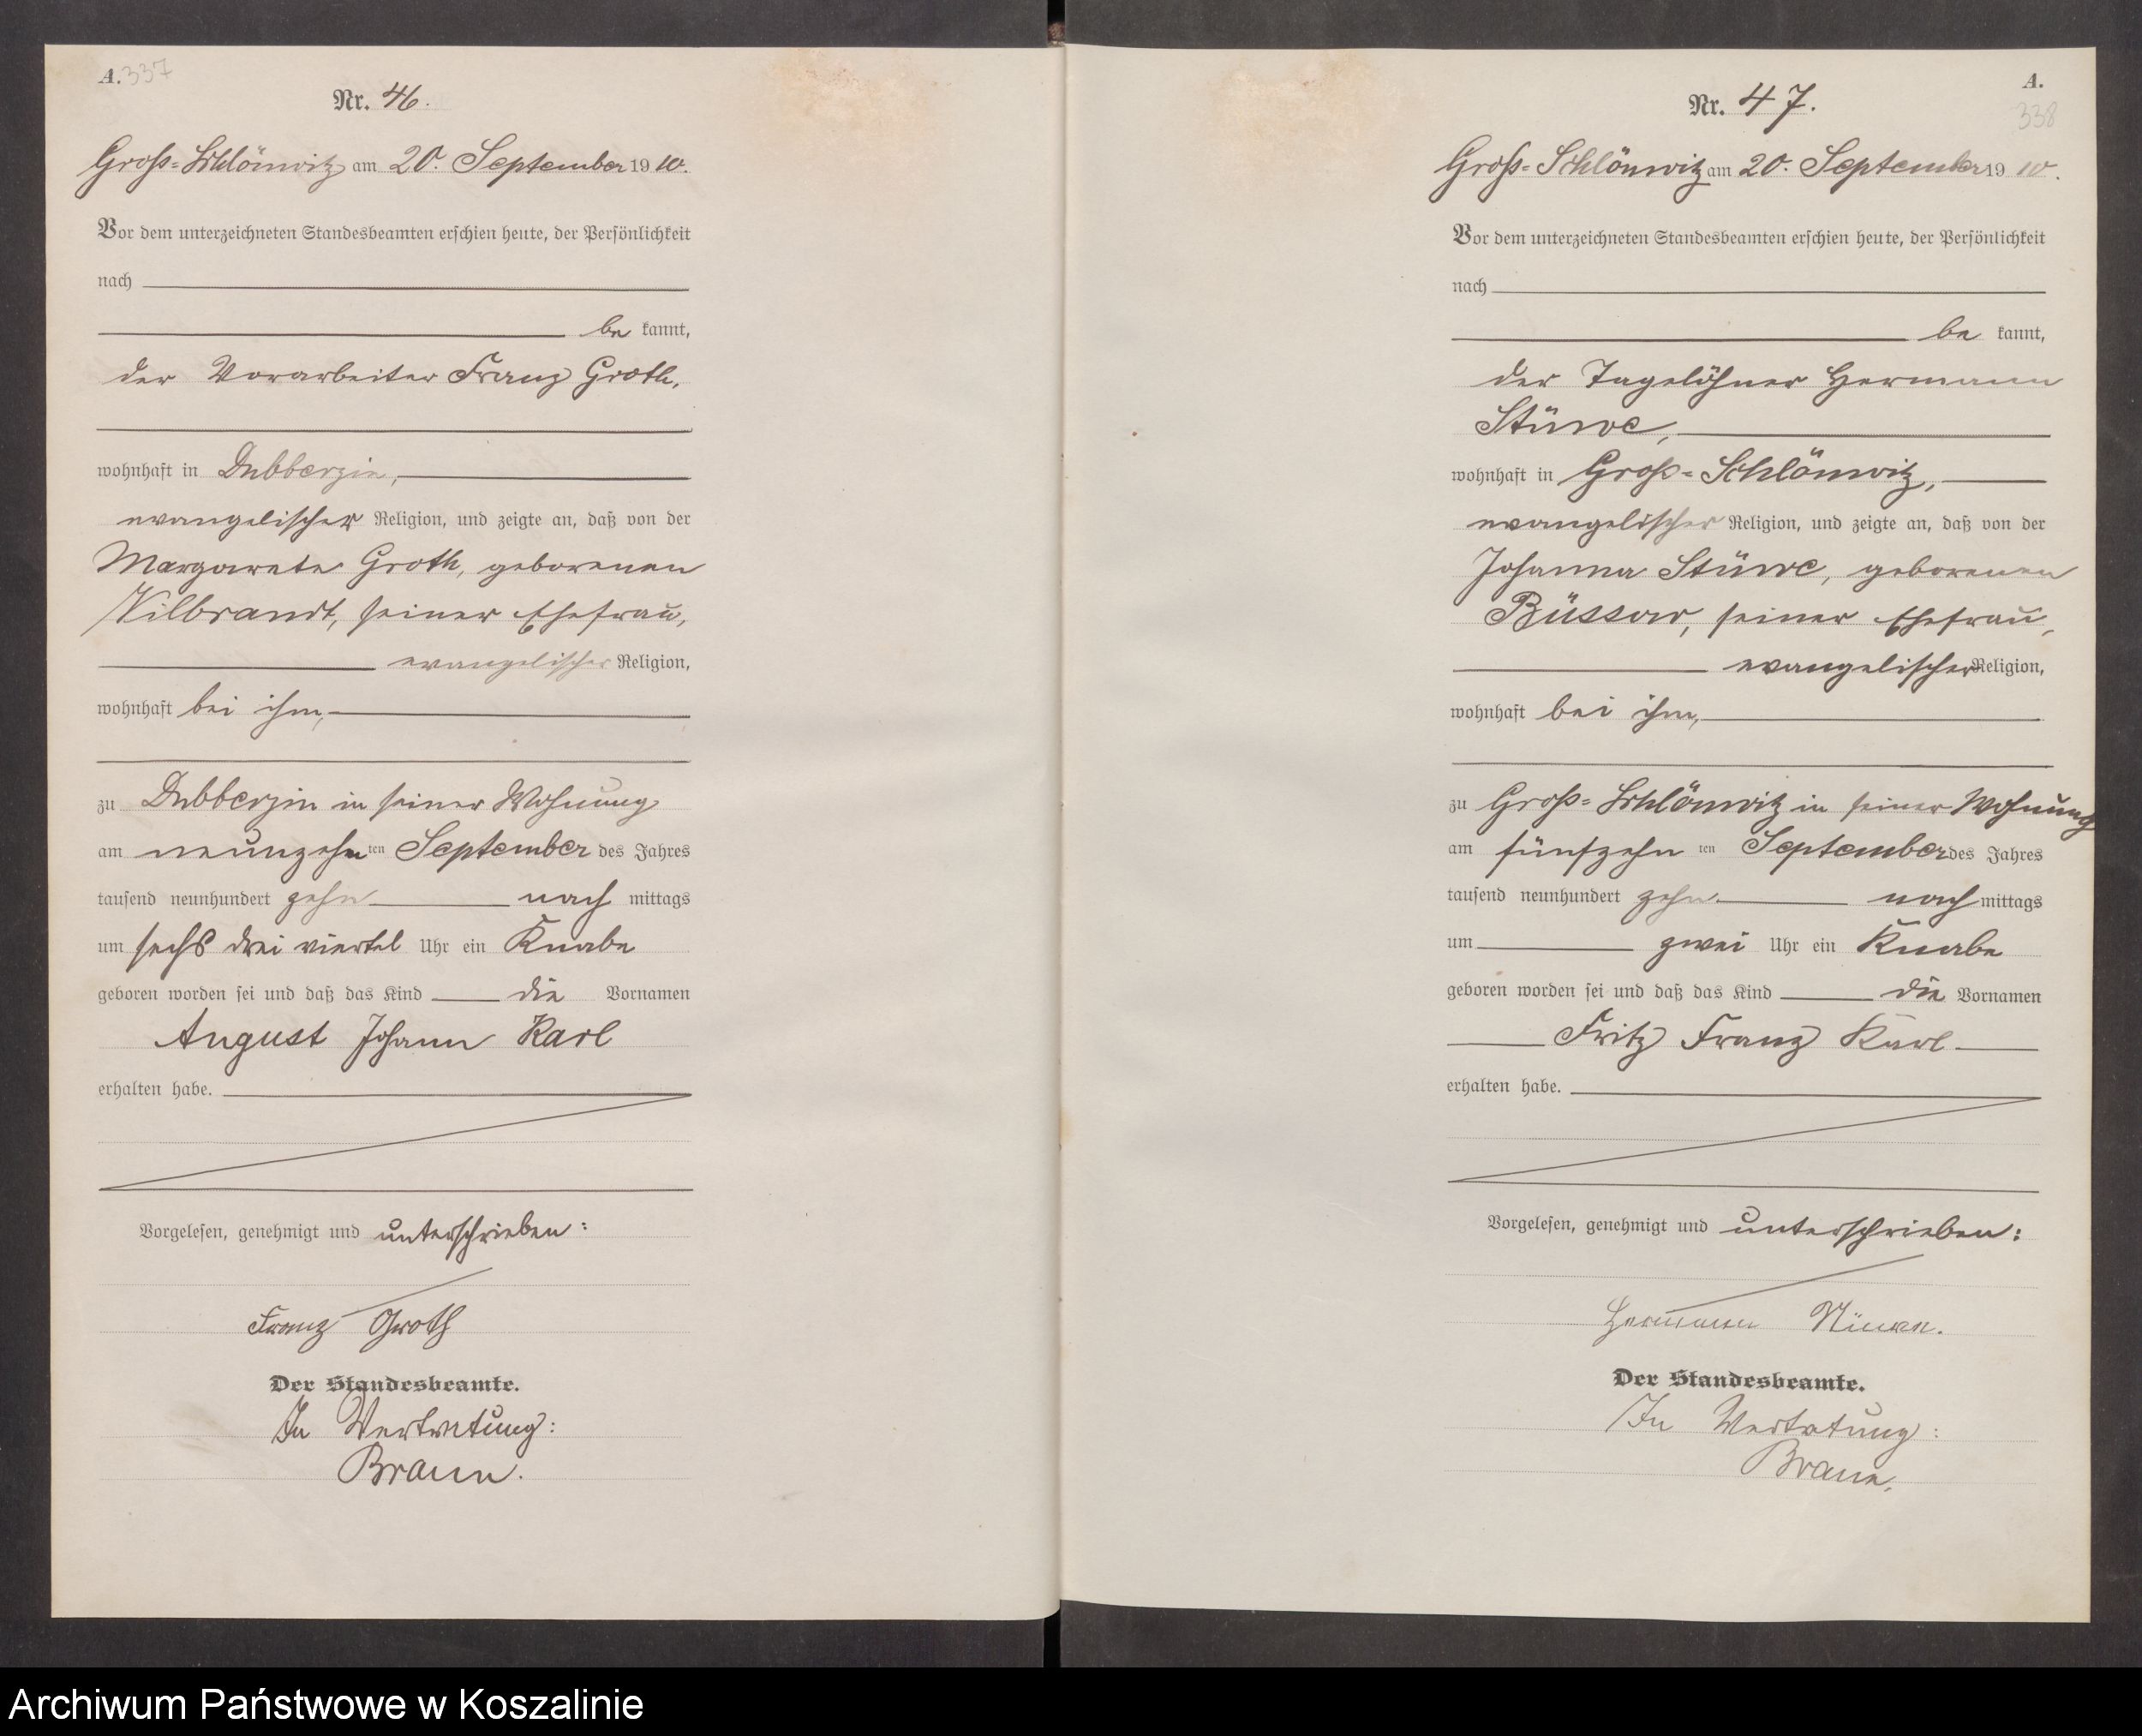 A. 337
Nr. 46.
Groß-Schlönwitz am 20. September 1910.
Vor dem unterzeichneten Standesbeamten erschien heute, der Persönlichkeit
nach
be kannt,
der Vorarbeiter Franz Groth,
wohnhaft in Dubberzin,
evangelischer Religion, und zeigte an, daß von der
Margarete Groth, geborenen
Wilbrandt, seiner Ehefrau,
evangelischer Religion,
wohnhaft bei ihm,
zu Dubberzin in seiner Wohnung
am neunzehnten September des Jahres
tausend neunhundert zehn nach mittags
um sechs drei viertel Uhr ein Knabe
geboren worden sei und daß das Kind die Vornamen
August Johann Karl
erhalten habe.
Vorgelesen, genehmigt und unterschrieben:
Franz Groth
Der Standesbeamte.
In Vertretung:
Braun.
A.
338
Nr. 47.
Groß-Schlönwitz am 20. September 1910.
Vor dem unterzeichneten Standesbeamten erschien heute, der Persönlichkeit
nach
be kannt,
der Tagelöhner Hermann
Stüwe,
wohnhaft in Groß-Schlönwitz,
evangelischer Religion, und zeigte an, daß von der
Johanna Stüwe, geborenen
Büssow, seiner Ehefrau,
evangelischer Religion,
wohnhaft bei ihm,
zu Groß-Schlönwitz in seiner Wohnung
am fünfzehn ten September des Jahres
tausend neunhundert zehn nach mittags
um zwei Uhr ein Knabe
geboren worden sei und daß das Kind die Vornamen
Fritz Franz Karl
erhalten habe.
Vorgelesen, genehmigt und unterschrieben:
Hermann Stüwe.
Der Standesbeamte.
In Vertretung:
Braun.
Archiwum Państwowe w Koszalinie